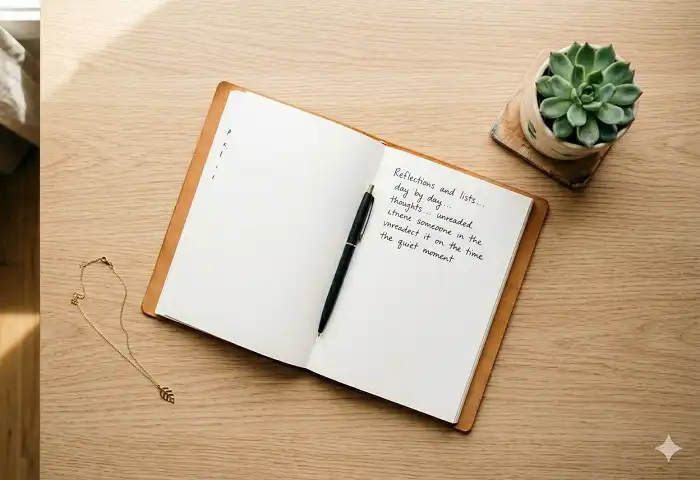 Reflections and lists...
day by day...
thoughts... unreaded
someoone in the
unreadect it on the time
the quiet moment